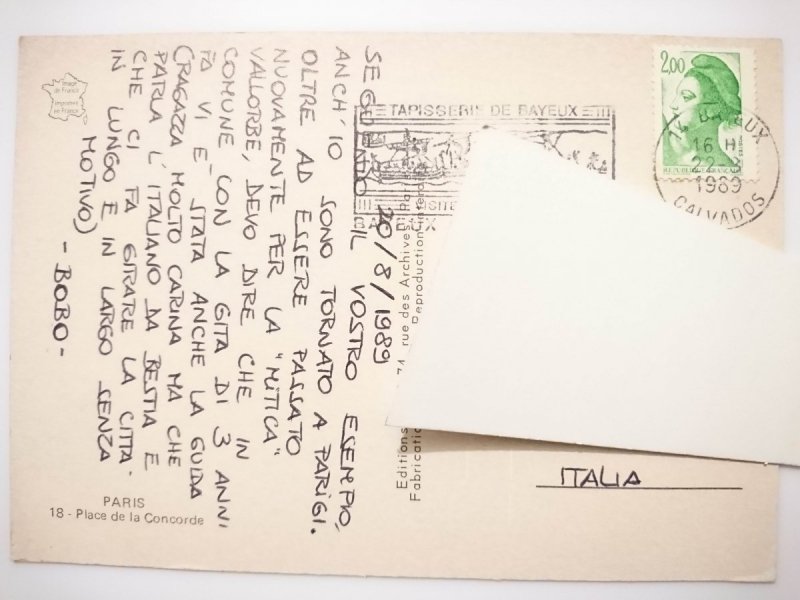 20/8/1989
SEGUENDO IL VOSTRO ESEMPIO,
ANCH'IO SONO TORNATO A PARIGI.
OLTRE AD ESSERE PASSATO
NUOVAMENTE PER LA "MITICA"
VALLORBE, DEVO DIRE CHE IN
COMUNE CON LA GITA DI 3 ANNI
FA VI E' STATA ANCHE LA GUIDA
(RAGAZZA MOLTO CARINA MA CHE
PARLA L'ITALIANO DA BESTIA E
CHE CI FA GIRARE LA CITTA'
IN LUNGO E IN LARGO SENZA
MOTIVO)
- BOBO -
Image de France
Imprimé en France
PARIS
18 - Place de la Concorde
Editions
Fabrication
74, rue des Archives, Par
Reproduction inter
TAPISSERIE DE BAYEUX
BAYEUX
2,00
REPUBLIQUE FRANCAISE
14 BAYEUX
16 H
22-8
1989
CALVADOS
ITALIA